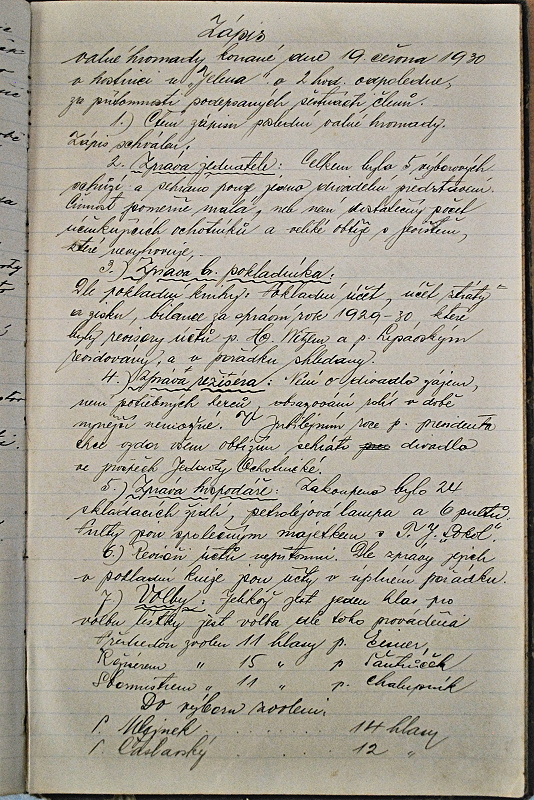 Zápis
valné hromady konané dne 19. června 1930
v hostinci u „Jelena" o 2 hod. odpoledne,
za přítomnosti podepsaných členů.
1.) Čtení zápisu poslední valné hromady.
Zápis schválen.
2. Zpráva jednatele: Celkem bylo 5 výborových
schůzí a sehráno pouze jedno divadelní představení.
Činnost poměrně malá, neb není dostatečný počet
účinkujících ochotníků a veliké obtíže s jevištěm,
které nevyhovuje.
3.) Zpráva b. pokladníka:
Dle pokladní knihy: Pokladní účet, účet ztráty
a zisku, bilance za správní rok 1929-30, které
byly revisory účtů p. a p.
revidovány, a v pořádku shledány.
4.) Zpráva režiséra: Není o divadlo zájem,
není potřebných herců obsazování rolí v době
nynější nemožné. roce p. presidenta
chce vzdor všem obtížím sehráti divadlo
ve prospěch Jednoty Ochotnické.
5.) Zpráva hospodáře: Zakoupeno bylo 24
skládacích židlí, petrolejová lampa a 6
jsou společným majetkem s T. J. „Sokol".
6.) Revisoři účtů nepřítomni. Dle zprávy jejich
v pokladní knize jsou účty v úplném pořádku.
7.) Volby: Jelikož jest jeden hlas pro
volbu lístky jest volba dle toho prováděna
Předsedou zvolen 11 hlasy p.
Režisérem „ 15 „ p
Sbormistrem „ 11 „ p. Chalupník
Do výboru zvoleni:
P. Mlejnek . . . . . . 14 hlasy
P. Čáslavský . . . . . 12 „